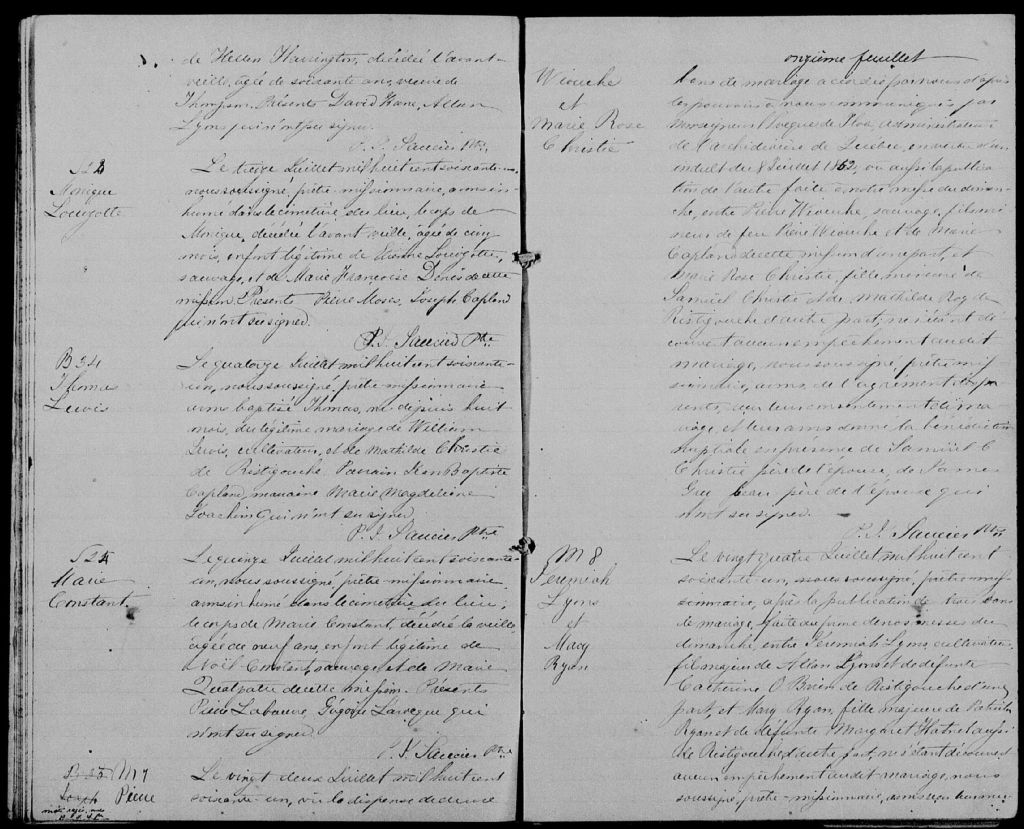 de Hellen Harrington, décédée l'avant-
veille, agée de soixante ans, veuve de
Thompson. Présents David Kane, Allan
Lyons qui n'ont pu signer.
P. J. Saucier Ptre
S 23
Monique
Louizotte
Le treize Juillet mil huit cent soixante-un,
nous soussigné, prêtre missionnaire, avons in-
humé dans le cimetière du lieu, le corps de
Monique, décédée l'avant veille, agée de cinq
mois, enfant légitime de Etienne Louizotte,
sauvage, et de Marie Françoise Denis de cette
mission. Présents Pierre Moses, Joseph Capland
qui n'ont su signer.
P. J. Saucier Ptre
B 34
Thomas
Lewis
Le quatorze Juillet mil huit cent soixante-
un, nous soussigné, prêtre missionnaire
avons baptisé Thomas, né depuis huit
mois, du légitime mariage de William
Lewis, cultivateur, et de Mathilde Christie
de Ristigouche. Parrain Jean Baptiste
Capland, marraine Marie Magdeleine
Joachim qui n'ont su signer.
P. J. Saucier Ptre
S 24
Marie
Constant
Le quinze Juillet mil huit cent soixante-
un, nous soussigné, prêtre missionnaire
avons inhumé dans le cimetière du lieu,
le corps de Marie Constant, décédée la veille
agée de neuf ans, enfant légitime de
Noël Constant, sauvage, et de Marie
Quatpatre de cette mission. Présents
Pierre Labauve, Grégoire Larocque qui
n'ont su signer.
P. J. Saucier Ptre
B 35 M 7
Joseph Pierre
Le vingt deux Juillet mil huit cent
soixante-un, vu la dispense de deux
onzième feuillet
Weouche
et
Marie Rose
Christie
bans de mariage accordée par nous d'après
les pouvoirs à nous communiqués par
Monseigneur l'Evêque de Tloa, administrateur
de l'archidiocèse de Québec, en vertu d'un
indult du 8 Juillet 1862, vu aussi la publica-
tion de l'autre faite à notre messe du diman-
che, entre Pierre Weouche, sauvage, fils mi-
neur de feu Pierre Weouche et de Marie
Capland de cette mission d'une part, et
Marie Rose Christie, fille mineure de
Samuel Christie et de Mathilde Roy de
Ristigouche d'autre part, ne s'étant dé-
couvert aucun empêchement au dit
mariage, nous soussigné, prêtre mis-
sionnaire, avons, de l'agrément des pa-
rents, reçu leur consentement de ma-
riage, et leur avons donné la bénédiction
nuptiale en présence de Samuel C
Christie père de l'épouse, de James
Gray beau père de l'époux qui
n'ont su signer.
P. J. Saucier Ptre
M 8
Jeremiah
Lyons
et
Mary
Ryan
Le vingt quatre Juillet mil huit cent
soixante-un, nous soussigné, prêtre mis-
sionnaire, après la publication de trois bans
de mariage, faite au prone de nos messes du
dimanche, entre Jeremiah Lyons cultivateur
fils majeur de Allan Lyons et de défunte
Catherine O Brien de Ristigouche d'une
part, et Mary Ryan, fille majeure de Patrick
Ryan et de défunte Margaret aussi
de Ristigouche, d'autre part, ne s'étant découvert
aucun empêchement au dit mariage, nous
soussigné, prêtre-missionnaire, avons reçu leur